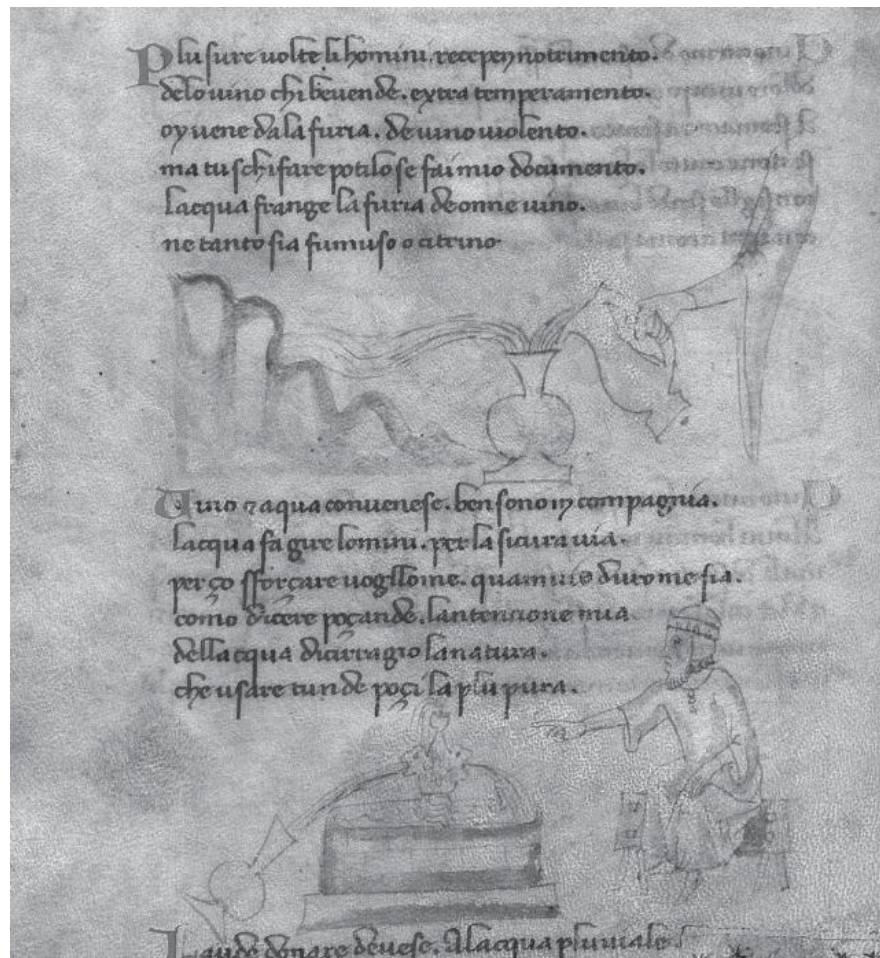 Plu sure uolte li homini. recepeno notrimento.
delo uino chi beuende. extra temperamento.
oy uene dala furia. de uino uiolento.
ma tu schifare potilo se fai mio documento.
lacqua frange la furia de onne uino.
ne tanto sia fumuso o citrino.
Uino & aqua conuenese. ben sono in compagnia.
lacqua fa gire lomini. per la sicura uia.
per ço sforçare uogllome. quamuis duro me sia.
como dicere poçande. lantencione mia
dellacqua diciragio la natura.
che usare tunde poçi la plu pura.
Laude donare deuese. Alacqua pluuiale